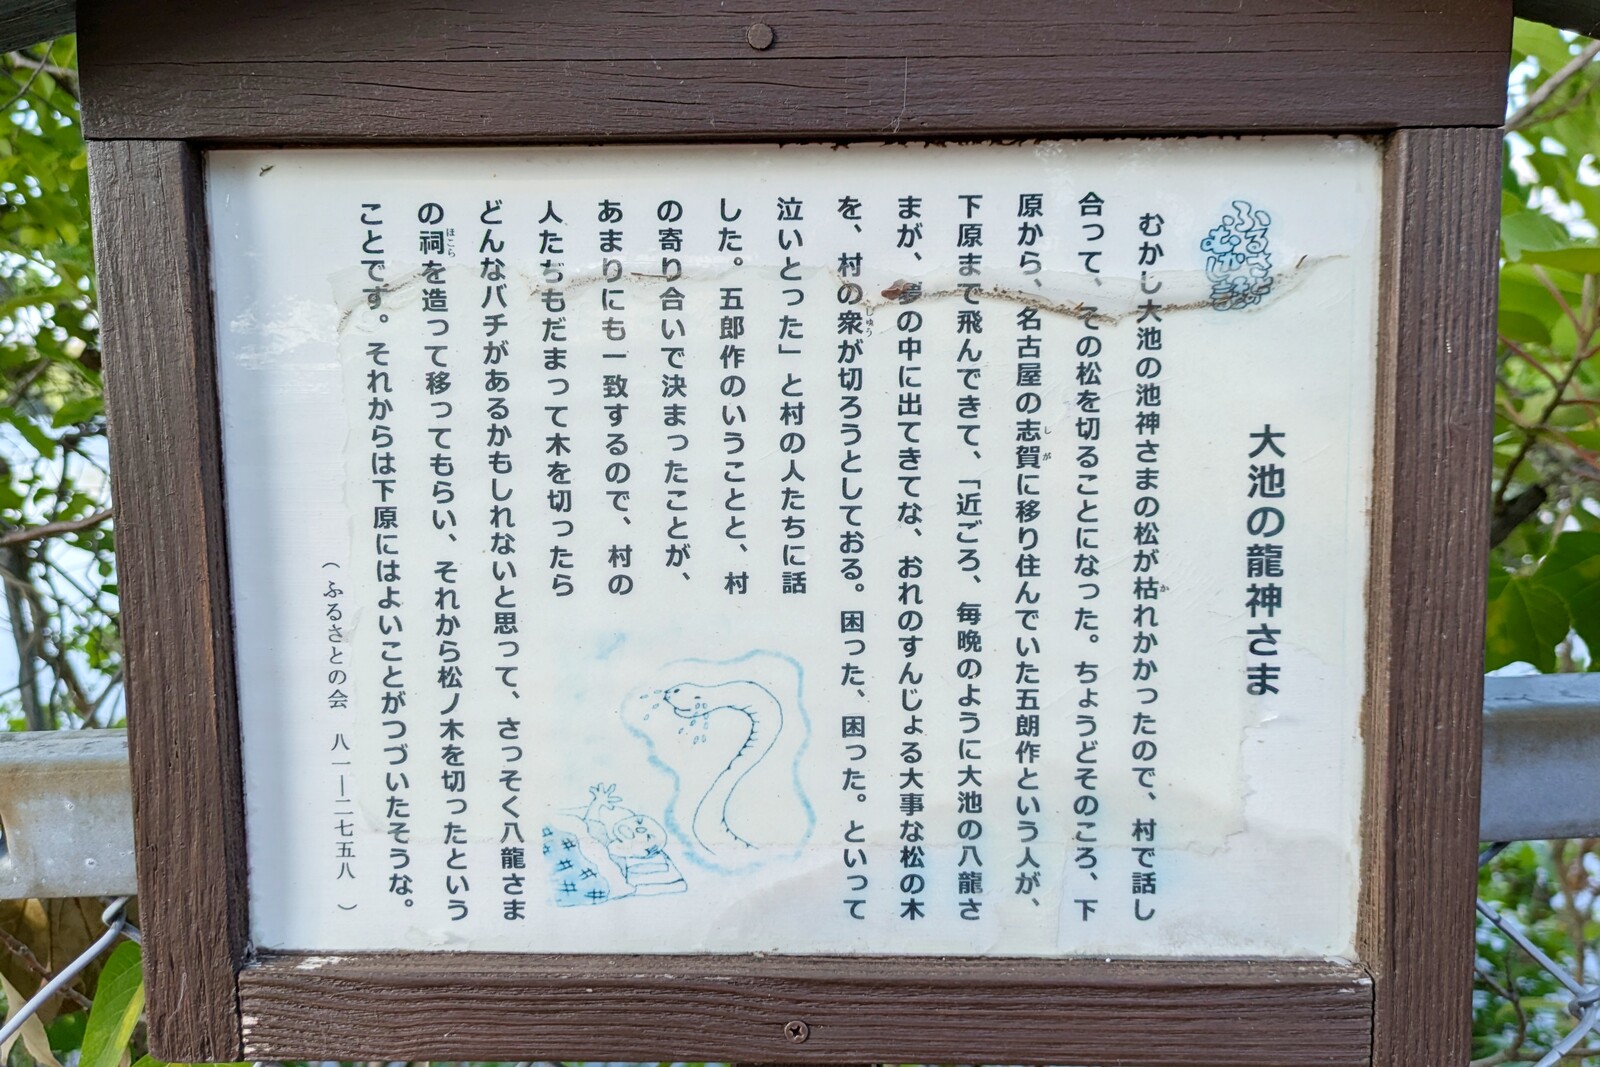 ふるさと
むかし話
大池の龍神さま
むかし大池の池神さまの松が枯れかかったので、村で話し
合って、その松を切ることになった。ちょうどそのころ、下
原から、名古屋の志賀に移り住んでいた五朗作という人が、
下原まで飛んできて、「近ごろ、毎晩のように大池の八龍さ
まが、夢の中に出てきてな、おれのすんじょる大事な松の木
を、村の衆が切ろうとしておる。困った、困った。といって
泣いとった」と村の人たちに話
した。五郎作のいうことと、村
の寄り合いで決まったことが、
あまりにも一致するので、村の
人たちもだまって木を切ったら
どんなバチがあるかもしれないと思って、さっそく八龍さま
の祠を造って移ってもらい、それから松ノ木を切ったという
ことです。それからは下原にはよいことがつづいたそうな。
（ふるさとの会 八一―二七五八）